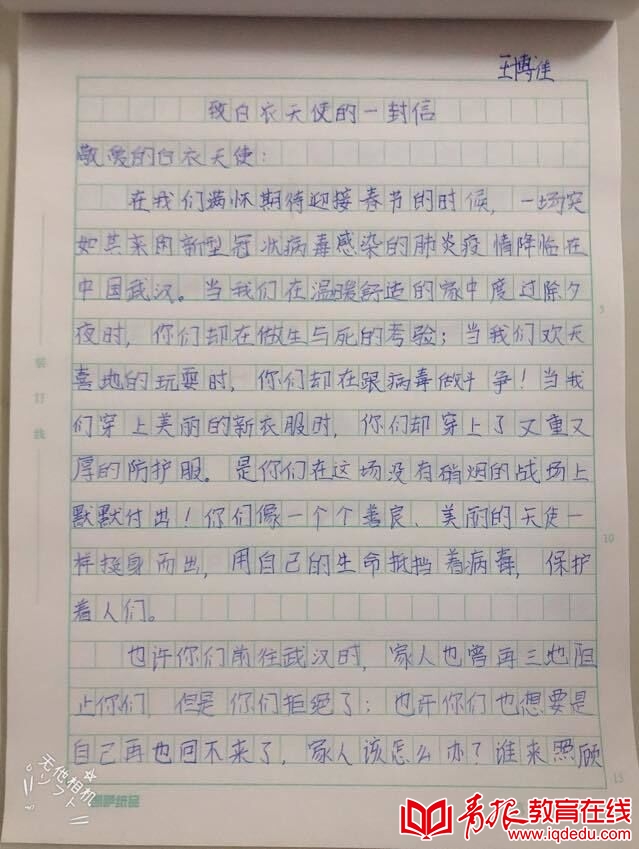 王博佳
致白衣天使的一封信
敬爱的白衣天使：
在我们满怀期待迎接春节的时候，一场突
如其来的新型冠状病毒感染的肺炎疫情降临在
中国武汉。当我们在温暖舒适的家中度过除夕
夜时，你们却在做生与死的考验；当我们欢天
喜地的玩耍时，你们却在跟病毒做斗争！当我
们穿上美丽的新衣服时，你们却穿上了又重又
厚的防护服。是你们在这场没有硝烟的战场上
默默付出！你们像一个个善良、美丽的天使一
样挺身而出，用自己的生命抵挡着病毒，保护
着人们。
也许你们前往武汉时，家人也曾再三地阻
止你们，但是你们拒绝了；也许你们也想要是
自己再也回不来了，家人该怎么办？谁来照顾
装订线
5
10
15
无他相机
ソフト
纸品
青报教育在线
www.iqdedu.com